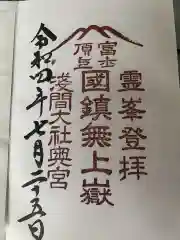 霊峯登拝
富士
頂上
國鎮無上嶽
浅間大社奥宮
令和四年七月二十五日